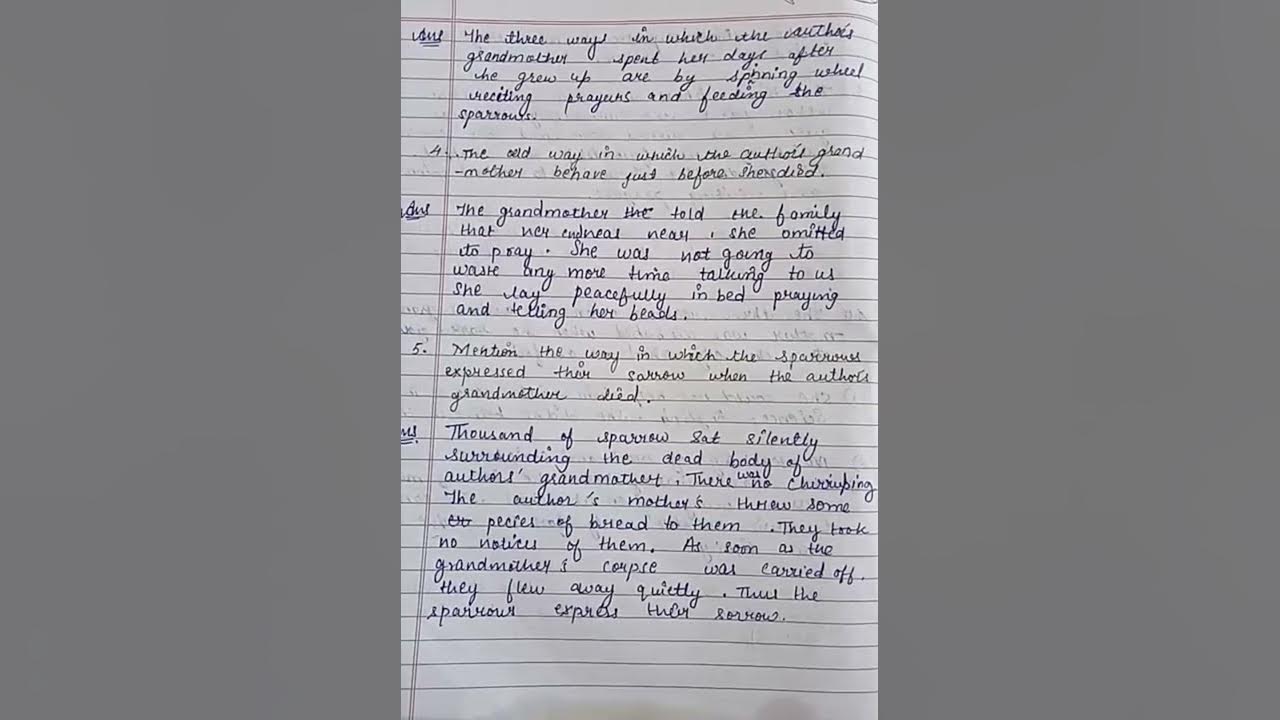 Ans The three ways in which the author's
grandmother spent her days after
he grew up are by spinning wheel
reciting prayers and feeding the
sparrows.
4. The odd way in which the author's grand
-mother behave just before she died.
Ans The grandmother the told the family
that her end neas near. she omitted
to pray. She was not going to
waste any more time talking to us
She lay peacefully in bed praying
and telling her beads.
5. Mention the way in which the sparrows
expressed their sarrow when the author's
grandmother died.
Ans. Thousand of sparrow sat silently
surrounding the dead body of
authors' grandmother. There was no cherruping
The author's mother's threw some
pecies of bread to them. They took
no notices of them. As soon as the
grandmother's corpse was carried off.
they flew away quietly. Thus the
sparrows express their sorrow.